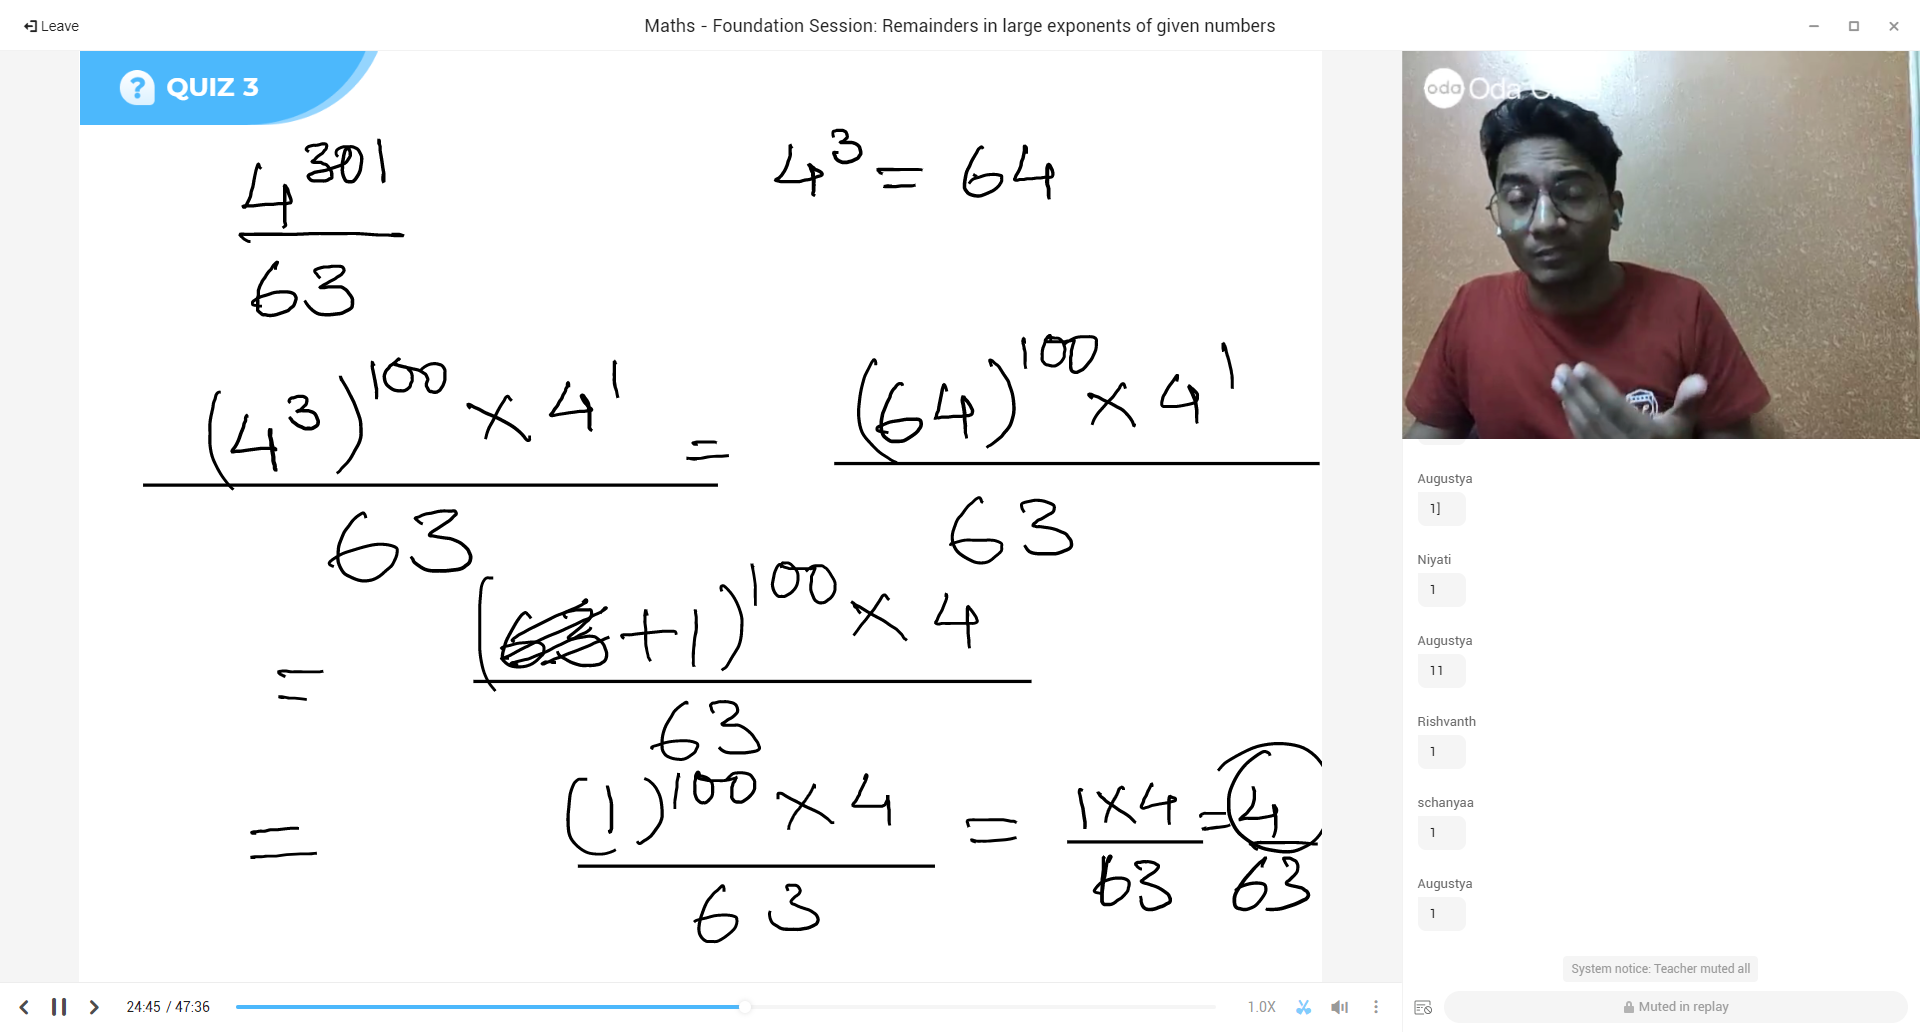 Leave
Maths - Foundation Session: Remainders in large exponents of given numbers
? QUIZ 3
4^301 / 63
4^3 = 64
(4^3)^100 × 4^1 / 63 = (64)^100 × 4^1 / 63
= (63+1)^100 × 4 / 63
= (1)^100 × 4 / 63 = 1×4 / 63 = 4 / 63
oda Oda
Augustya
1]
Niyati
1
Augustya
11
Rishvanth
1
schanyaa
1
Augustya
1
System notice: Teacher muted all
24:45 / 47:36
1.0X
Muted in replay